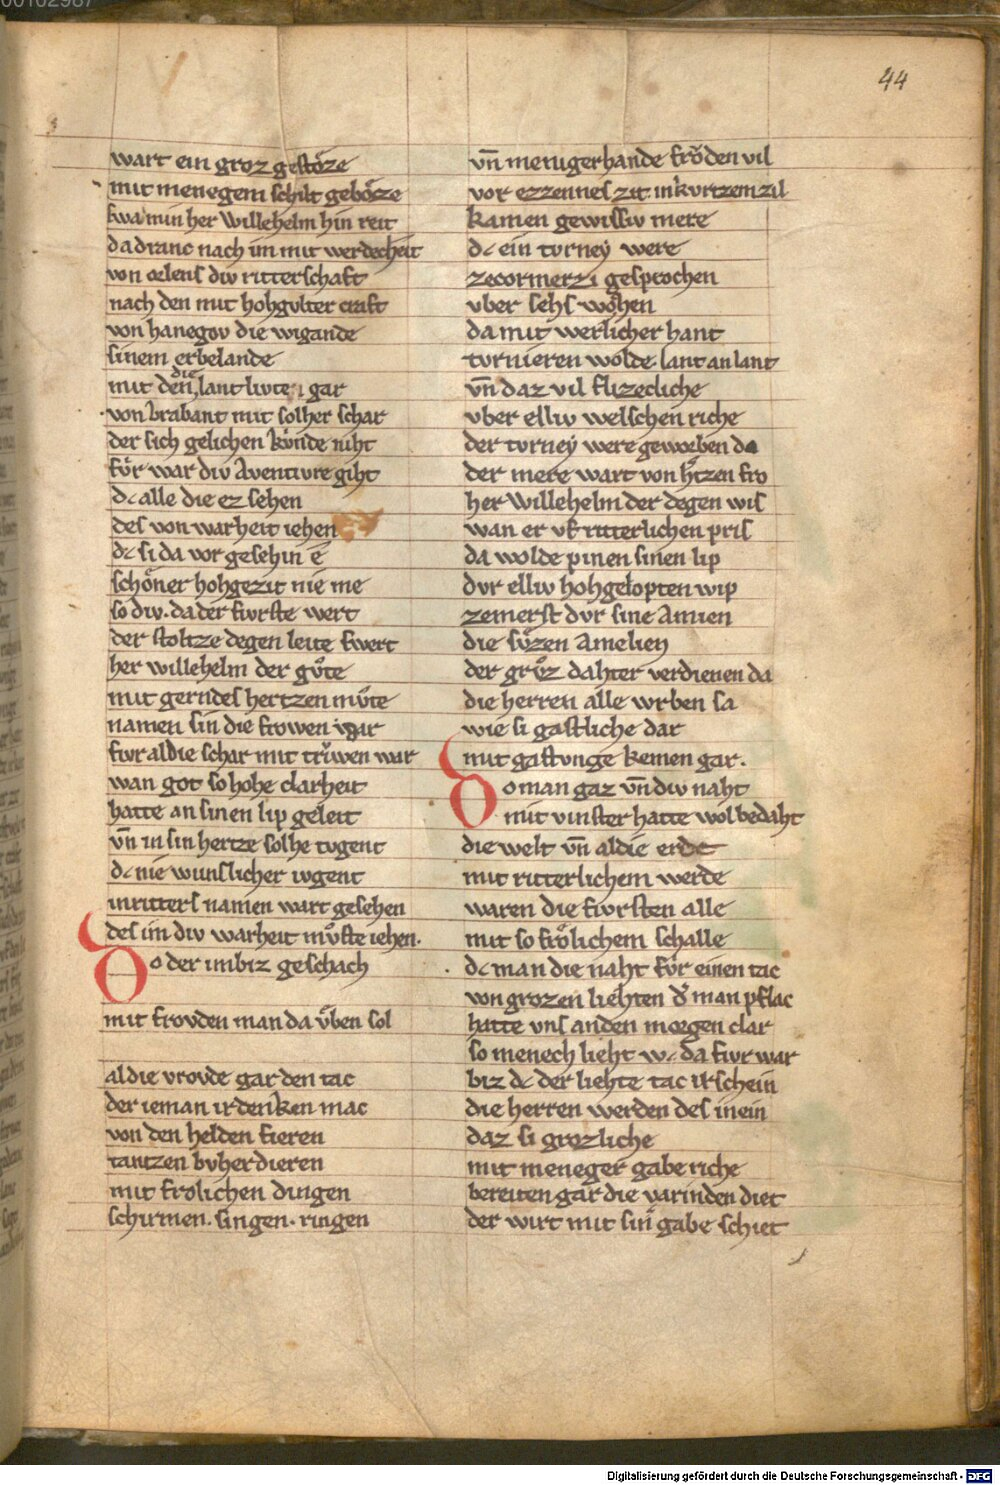 44
wart ein groz gestoͤze
mit menegem schilt geboͤze
swa min her Willehelm hin reit
da dranc nach im mit werdecheit
von celens div ritterschaft
nach den mit hohgvlter craft
von hanegov die wigande
sinem erbelande
mit den die lantlivte gar
von brabant mit solher schar
der sich gelichen koͤnde niht
fuͤr war div Aventivre giht
dc alle die ez sehen
des von warheit iehen
dc si da vor gesehin é
schoͤner hohgezit nie me
so div. da der fivrste wert
der stoltze degen leite swert
her willehelm der guͦte
mit gerndes hertzen muͦte
namen sin die frowen war
fivr al die schar mit trivwen war
wan got so hohe clarheit
hatte an sinen lip geleit
vn̄ in sin hertze solhe tvgent
dc nie wunslicher ivgent
in ritters namen wart gesehen
des im div warheit muͦste iehen.
Do der imbiz geschach
mit frovden man da vͤben sol
al die vrovde gar den tac
der ieman irdenken mac
von den helden fieren
tantzen bvherdieren
mit frolichen dingen
schirmen. singen. ringen
vn̄ menigerhande froͤden vil
vor ezzennes zit. in kvrtzem zil
kamen gewissiv mere
dc ein torney were
ze cormerzi gesprochen
vber sehs wochen
da mit werlicher hant
tornieren wolde. lant an lant
vn̄ daz vil flizecliche
vber elliv welschen riche
der torney were geworben da
der mere wart von h̄tzen fro
her Willehelm der degen wis
wan er vf ritterlichen pris
da wolde pinen sinen lip
dvr elliv hohgelopten wip
zemerst dvr sine Amien
die suͤzen Amelien
der gruͦz dahter verdienen da
die herren alle wrben sa
wie si gastliche dar
mit gastvnge kemen gar.
Do man gaz vn̄ div naht
mit vinster hatte wol bedaht
die welt vn̄ al die erde
mit ritterlichem werde
waren die fivrsten alle
mit so froͤlichem schalle
dc man die naht fuͤr einen tac
von grozen liehten d̓ man pflac
hatte vns an den morgen clar
so menech lieht wc da fivr war
biz dc der liehte tac irschein
die herren werden des inein
daz si grozliche
mit meneger gabe riche
bereiten gar die varinden diet
der wirt mit sin̄ gabe schiet
Digitalisierung gefördert durch die Deutsche Forschungsgemeinschaft - DFG